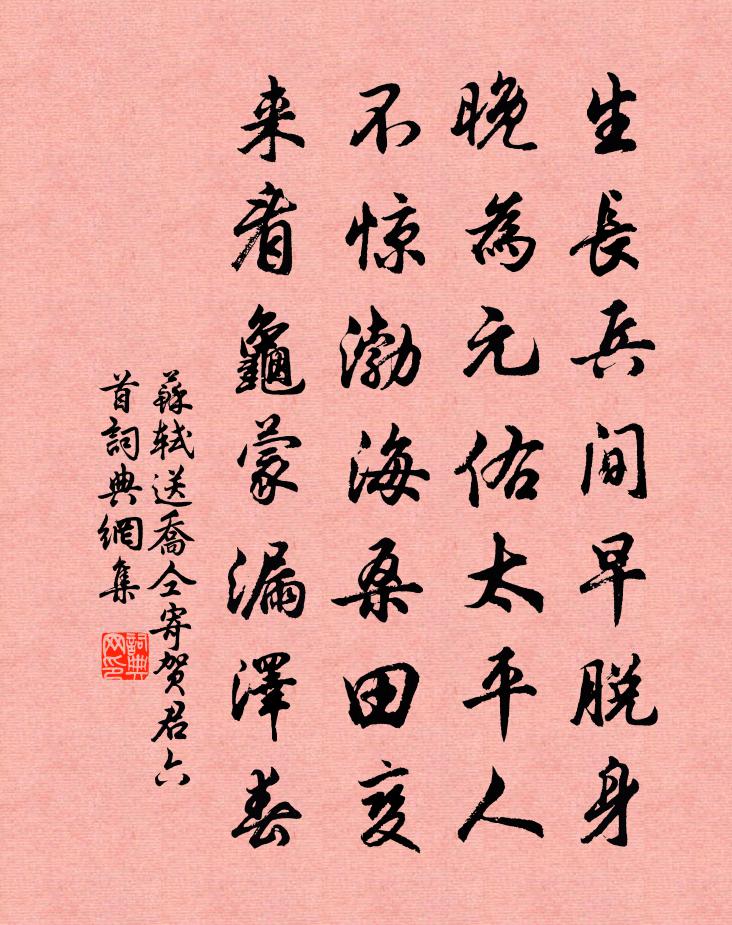 生長兵間早脱身
晚為元佑太平人
不惊渤海桑田变
来看龜蒙漏澤春
蘇軾送喬仝寄贺君六
首詞典網集
詞典
网印